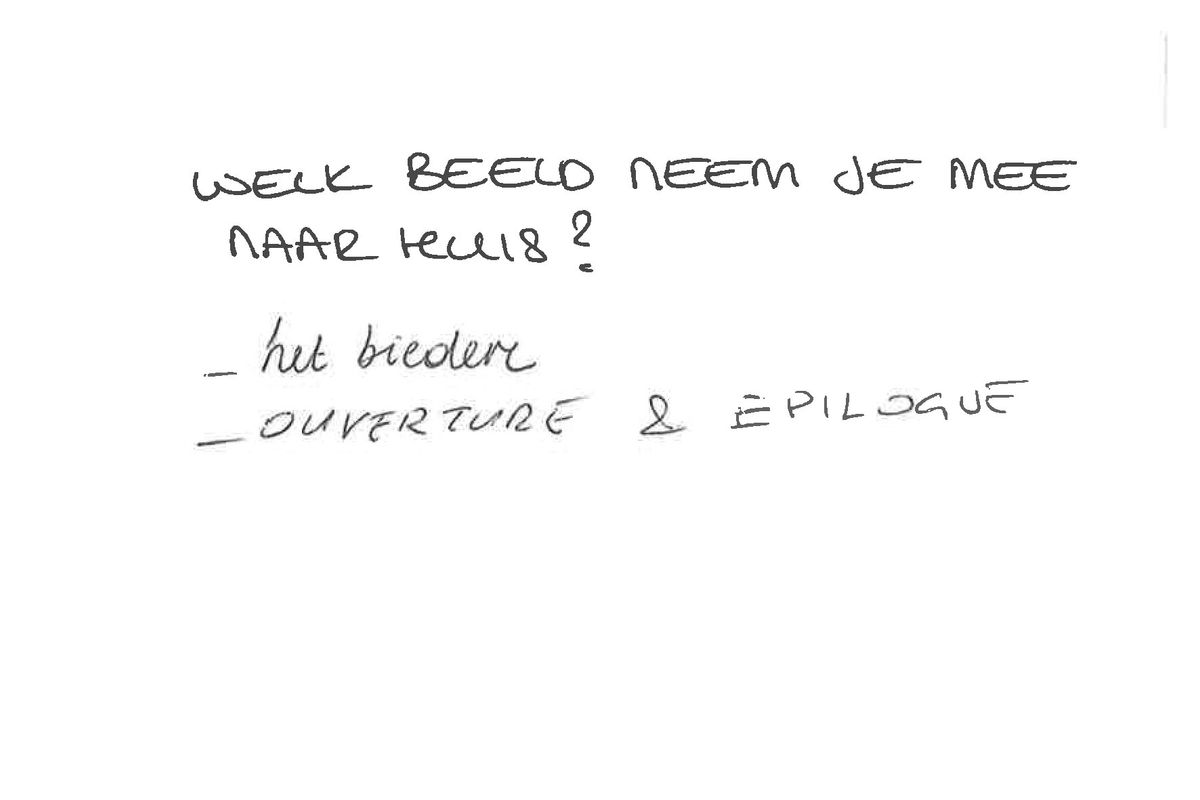 WELK BEELD NEEM JE MEE
NAAR HUIS?
_ het biedere
_ OUVERTURE & EPILOGUE